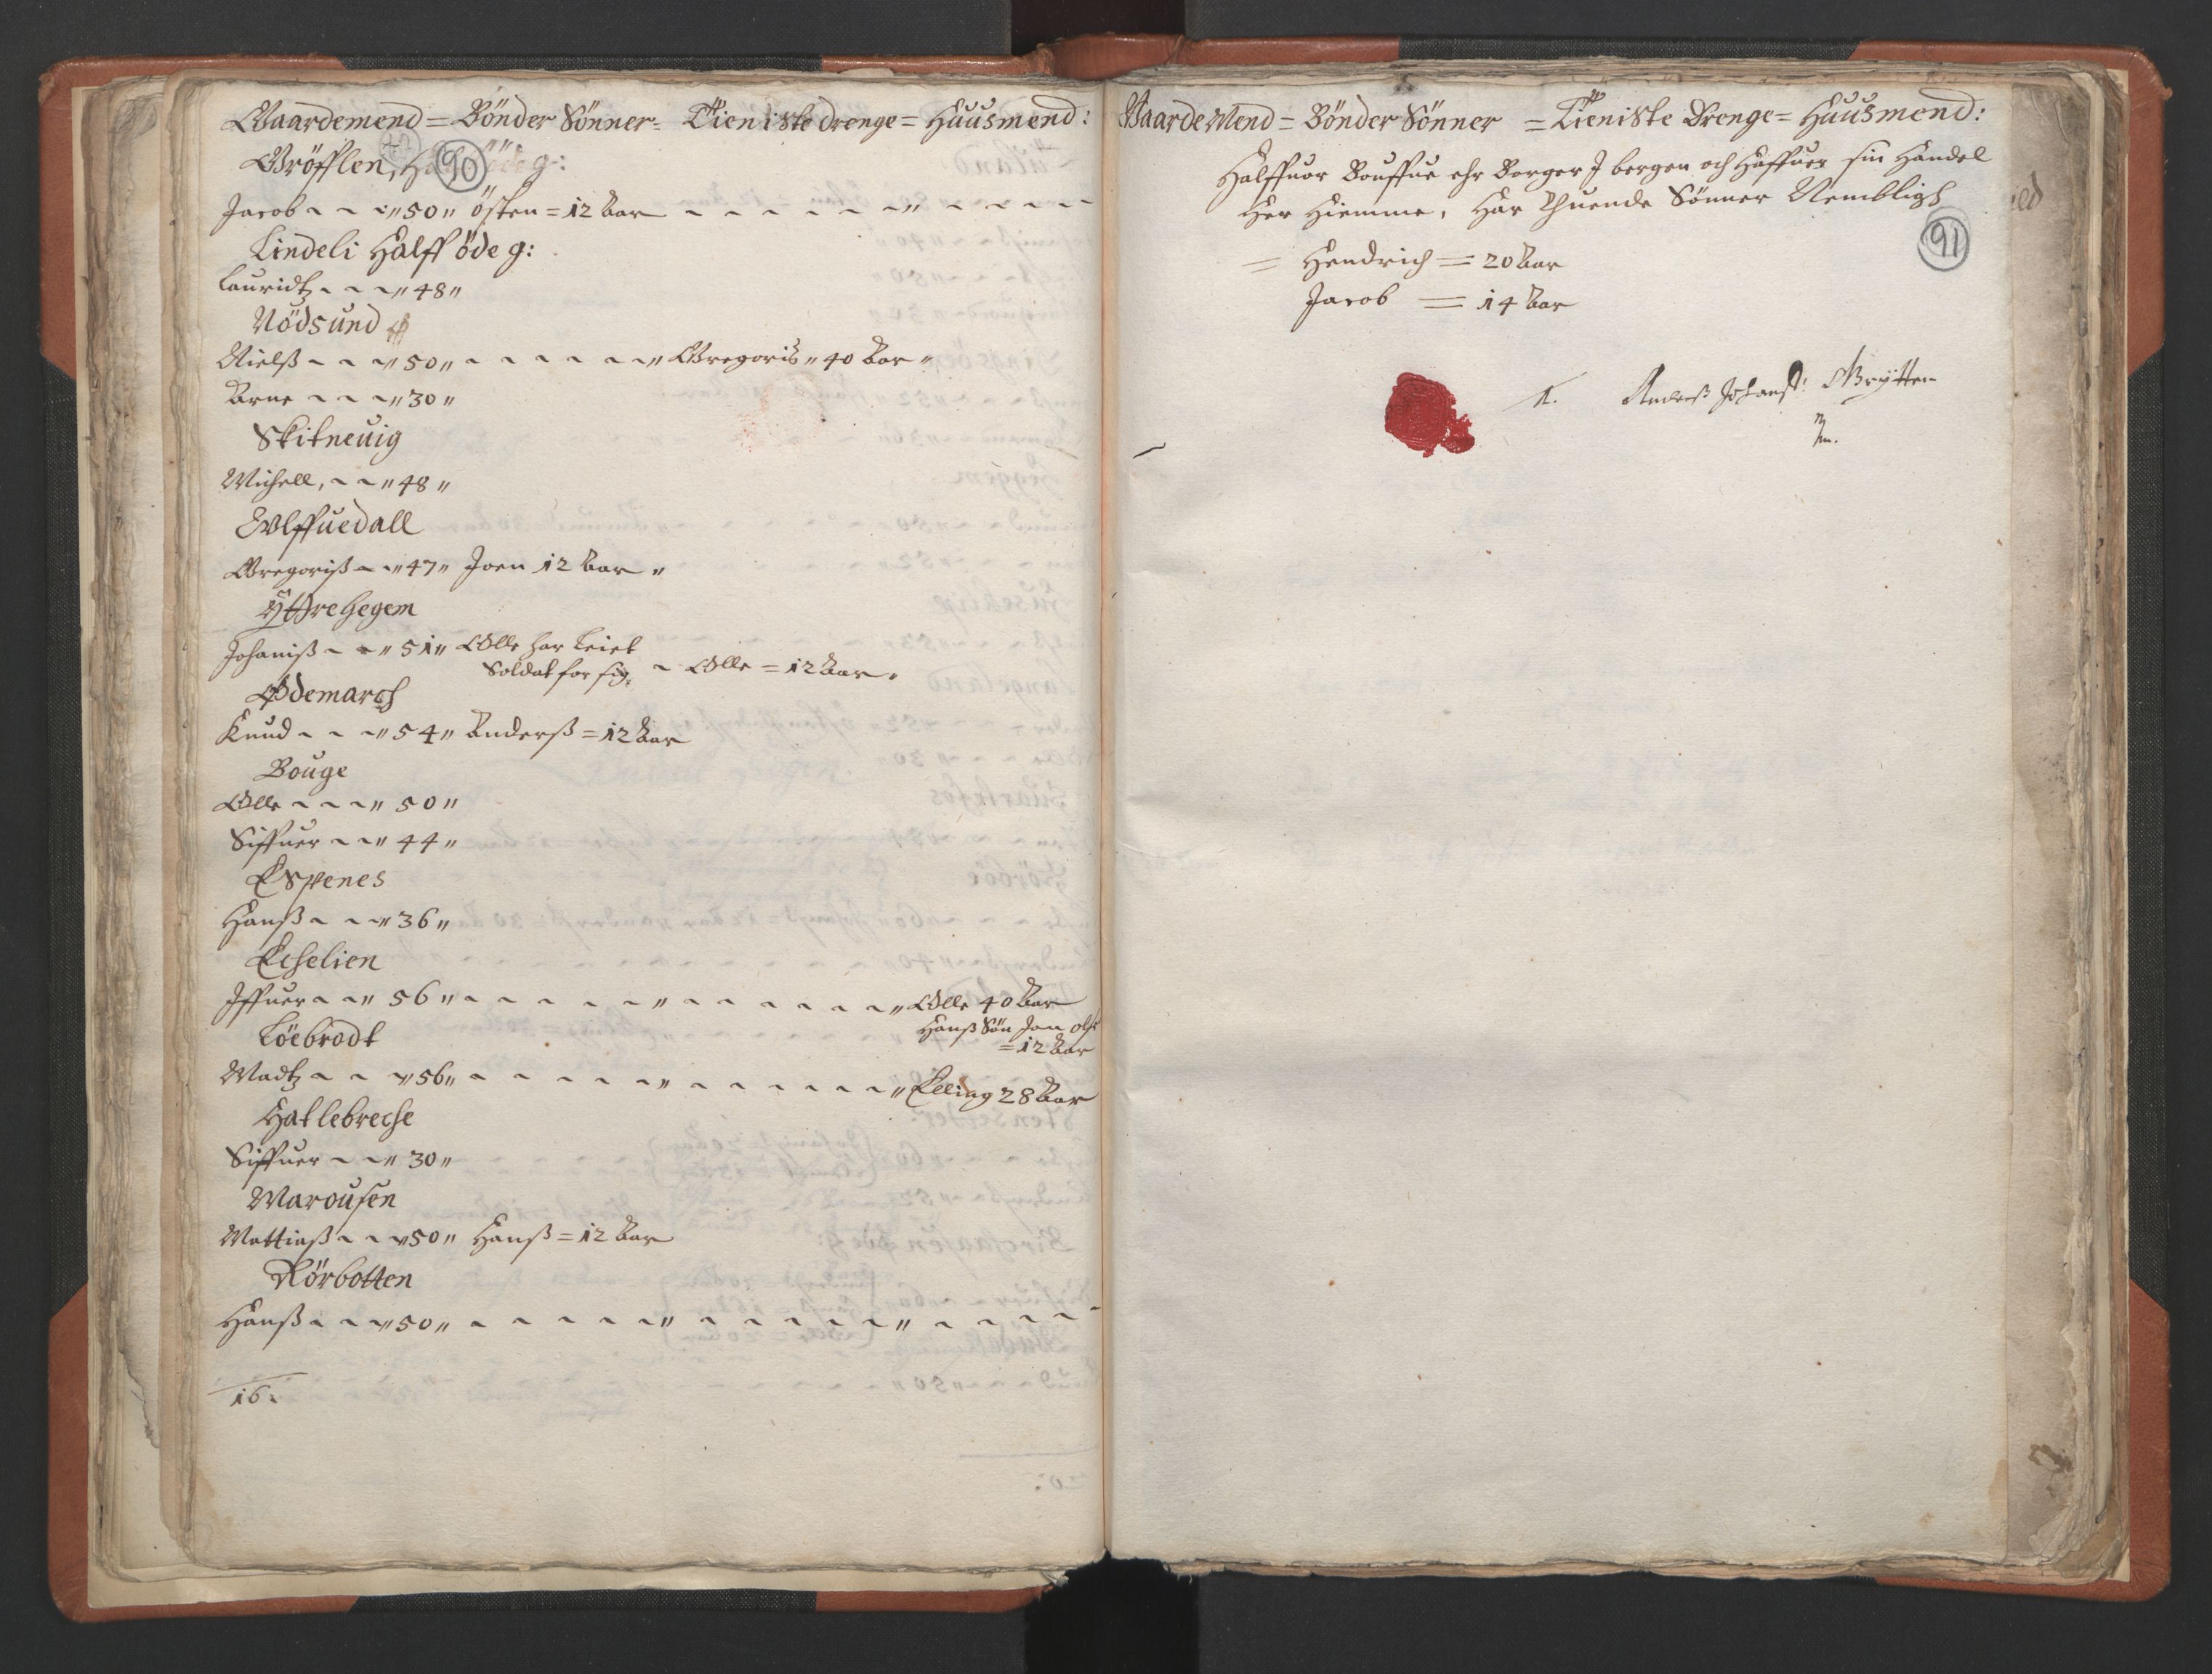 Gaardemend = Bönder Sönner = Tieniste drenge = Huusmend:
90
Gröfflen, öde g:
Jacob 50 östen = 12 Aar
Lindeli Halff öde g:
Lauridtz 48
Nödsund
Nielß 50 Gregoris 40 Aar
Arne 30
Skitneuig
Michell, 48
Vlffuedall
Gregoriß 47 Joen 12 Aar
yttrehegem
Johaniß 51 Olle har Leiet
Soldat for sig, Olle = 12 Aar
Ødemarch
Knud 54 Anderß = 12 Aar
Bouge
Olle 50
Siffuer 44
Espenes
Hanß 36
Echelien
Iffuer 56 Olle 40 Aar
Hanß Sön Jon
= 12 Aar
Löebrodt
Madtz 56 Elling 28 Aar
Hatlebreche
Siffuer 30
Marousen
Mattiaß 50 Hanß = 12 Aar
Rörbotten
Hanß 50
16:
Gaarde Mend = Bönder Sönner = Tieniste Drenge = Huusmend:
Halffuor Bouffue ehr Borger J bergen och Haffuer sin Handel
Her Hiemme, Har Thuende Sönner Nembligh
91
= Hendrich = 20 Aar
Jacob = 14 Aar
1. Anderß Johanß: Grytten